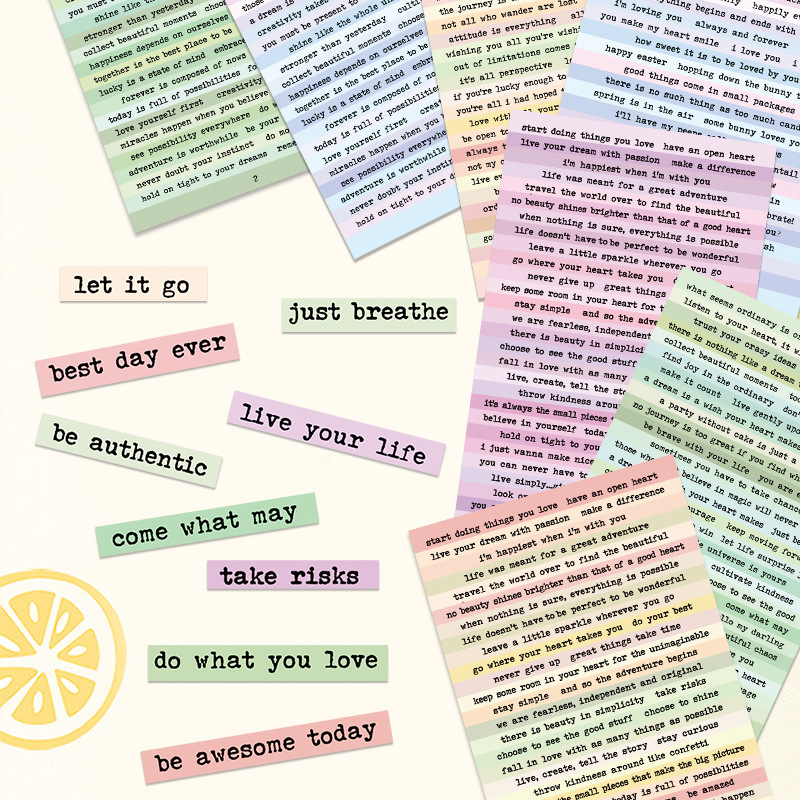 you must
shine like
stronger than yesterday
collect beautiful moments choos
happiness depends on ourselves
together is the best place to be
lucky is a state of mind embrac
forever is composed of nows
today is full of possibilities fo
love yourself first creativity
miracles happen when you believe
see possibility everywhere do w
adventure is worthwhile be your
never doubt your instinct do mo
hold on tight to your dreams reme
2
a dream is
creativity takes
you must be present to
shine like the whole univers
stronger than yesterday culti
collect beautiful moments choose
happiness depends on ourselves
together is the best place to be
lucky is a state of mind embr
forever is composed of nows
today is full of possibilities
love yourself first crea
miracles happen when you
see possibility everywhe
adventure is worthwhile
never doubt your instin
hold on tight to your d
the journey is
not all who wander are lost
attitude is everything all
wishing you all you're wish
out of limitations comes
it's all perspective l
if you're lucky enough to
you're all i had hoped
love with all your
be open to
always
not my c
live ev
be
ord
go
everything begins and ends with
i'm loving you always and forever
you make my heart smile i love you i
how sweet it is to be loved by you
happy easter hopping down the bunny t
good things come in small packages
there is no such thing as too much cand
spring is in the air some bunny loves yo
i'll have my peeps
start doing things you love have an open heart
live your dream with passion make a difference
i'm happiest when i'm with you
life was meant for a great adventure
travel the world over to find the beautiful
no beauty shines brighter than that of a good heart
when nothing is sure, everything is possible
life doesn't have to be perfect to be wonderful
leave a little sparkle wherever you go
go where your heart takes you d
never give up great things
keep some room in your heart for t
stay simple and so the adve
we are fearless, independent
there is beauty in simplici
choose to see the good stuff
fall in love with as many
live, create, tell the sto
throw kindness arou
it's always the small pieces
believe in yourself toda
hold on tight to you
i just wanna make nice
you can never have to
live simply...
look
you
what seems ordinary is
listen to your heart, it w
trust your crazy ideas
there is nothing like a dream
collect beautiful moments too
find joy in the ordinary don't
make it count live gently upo
a dream is a wish your heart makes
a party without cake is just a
no journey is too great if you find wh
be brave with your life you are e
sometimes you have to take chanc
those who believe in magic will never
your heart makes just be
courage keep moving forw
win let life surprise
universe is yours
cultivate kindness
choose to see the good
come what may
hello my darling
beautiful chaos
let it go
just breathe
best day ever
live your life
be authentic
come what may
take risks
do what you love
be awesome today
start doing things you love have an open heart
live your dream with passion make a difference
i'm happiest when i'm with you
life was meant for a great adventure
travel the world over to find the beautiful
no beauty shines brighter than that of a good heart
when nothing is sure, everything is possible
life doesn't have to be perfect to be wonderful
leave a little sparkle wherever you go
go where your heart takes you do your best
never give up great things take time
keep some room in your heart for the unimaginable
stay simple and so the adventure begins
we are fearless, independent and original
there is beauty in simplicity take risks
choose to see the good stuff choose to shine
fall in love with as many things as possible
live, create, tell the story stay curious
throw kindness around like confetti
the small pieces that make the big picture
today is full of possiblities
be amazed
happen